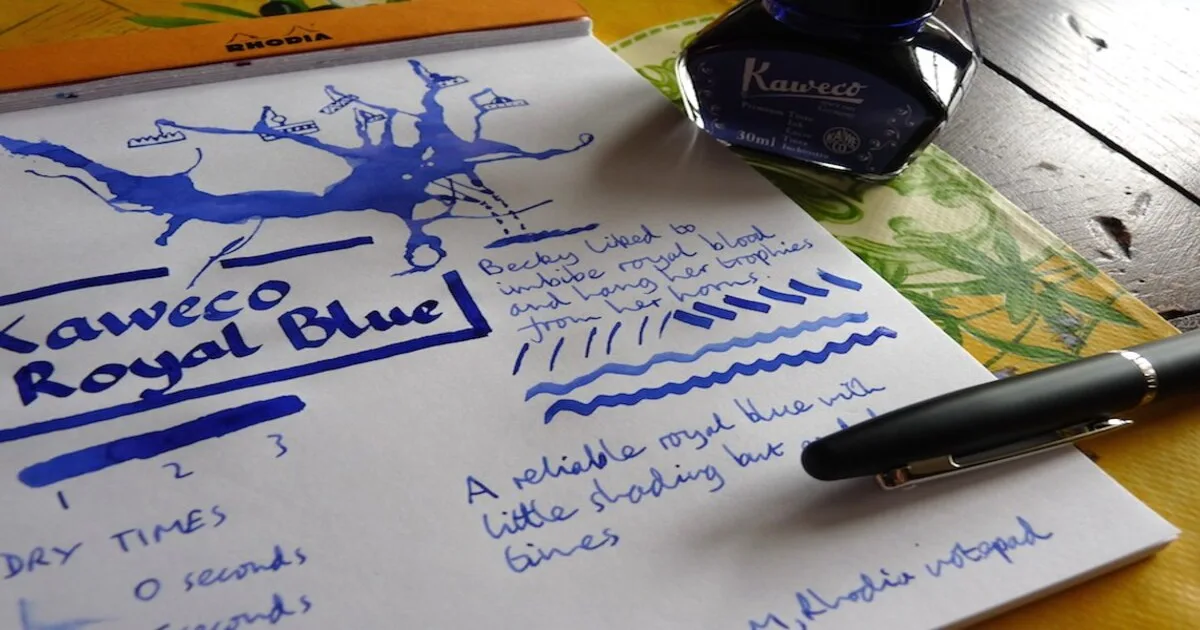 RHODIA
Kaweco
30ml
KAWECO
Becky liked to
imbibe royal blood
and hang her trophies
from her horns.
Kaweco
Royal Blue
1 2 3
A reliable royal blue with
little shading but
times
DRY TIMES
0 seconds
seconds
M, Rhodia notepad